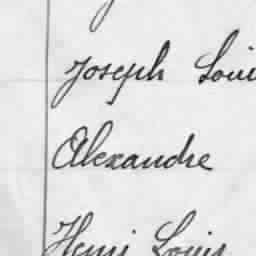 Joseph Loui
Alexandre
Henri Louis